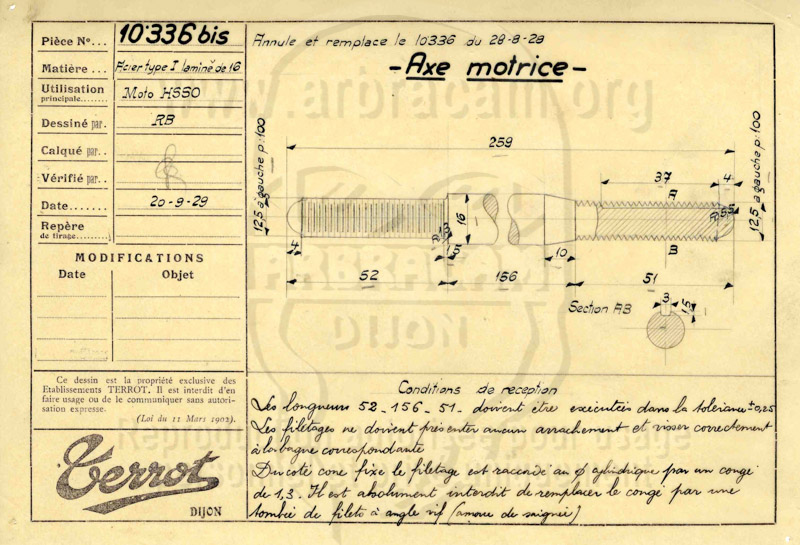 Pièce No... 10.336 bis
Matière... Acier type I laminé de 16
Utilisation principale... Moto HSSO
Dessiné par. RB
Calqué par..
Vérifié par..
Date... 20-9-29
Repère de tirage.
MODIFICATIONS
Date Objet
Ce dessin est la propriété exclusive des
Etablissements TERROT. Il est interdit d'en
faire usage ou de le communiquer sans autori-
sation expresse.
(Loi du 11 Mars 1902).
Terrot
DIJON
Annule et remplace le 10336 du 28-8-29
- Axe motrice -
www.arbracam.org
259
12,5 à gauche p:100
37
4
A
5,5
12,5 à gauche p:100
16
4
1,5
10
B
52
156
51
Section AB
3
1,5
ARBRACAM
DIJON
Conditions de reception
Les longueurs 52-156-51- doivent être exécutées dans la tolérance ± 0,25
Les filetages ne doivent présenter aucun arrachement et visser correctement
à la bague correspondante
Du coté cone fixe le filetage est raccordé au ø cylindrique par un congé
de 1,3. Il est absolument interdit de remplacer le congé par une
tombée de filets à angle vif (amorce de saignée)